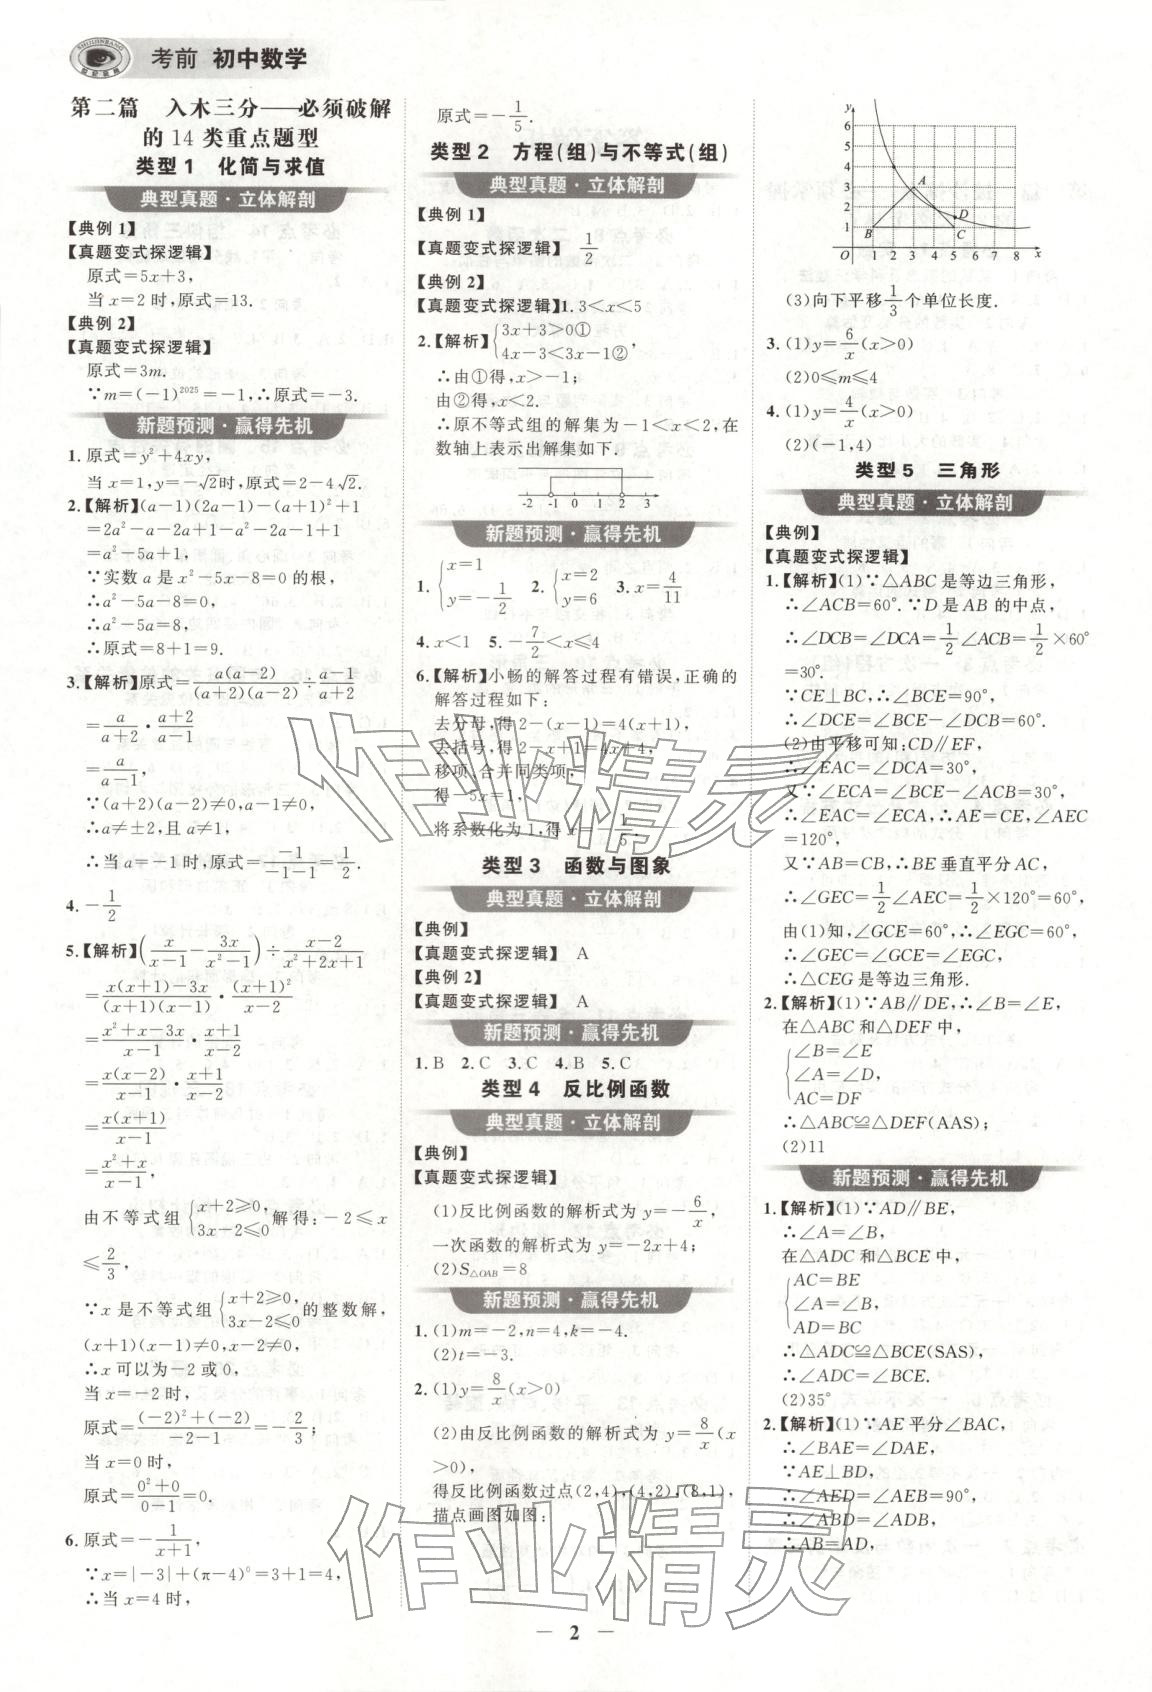 考前 初中数学
第二篇 入木三分——必须破解
的14类重点题型
类型1 化简与求值
典型真题·立体解剖
【典例1】
【真题变式探逻辑】
原式=5x+3,
当x=2时,原式=13.
【典例2】
【真题变式探逻辑】
原式=3m.
∵m=(-1)²⁰²⁵=-1,∴原式=-3.
新题预测·赢得先机
1.原式=y²+4xy,
当x=1,y=-√2时,原式=2-4√2.
2.【解析】(a-1)(2a-1)-(a+1)²+1
=2a²-a-2a+1-a²-2a-1+1
=a²-5a+1,
∵实数a是x²-5x-8=0的根,
∴a²-5a-8=0,
∴a²-5a=8,
∴原式=8+1=9.
3.【解析】原式=a(a-2)/(a+2)(a-2)÷(a-1)/(a+2)
=a/(a+2)·(a+2)/(a-1)
=a/(a-1),
∵(a+2)(a-2)≠0,a-1≠0,
∴a≠±2,且a≠1,
∴当a=-1时,原式=-1/(-1-1)=1/2.
4.-1/2
5.【解析】(x/(x-1)-3x/(x²-1))÷(x-2)/(x²+2x+1)
=(x(x+1)-3x)/((x+1)(x-1))·(x+1)²/(x-2)
=(x²+x-3x)/(x-1)·(x+1)/(x-2)
=x(x-2)/(x-1)·(x+1)/(x-2)
=x(x+1)/(x-1)
=(x²+x)/(x-1),
由不等式组{x+2≥0, 3x-2≤0解得:-2≤x
≤2/3,
∵x是不等式组{x+2≥0, 3x-2≤0的整数解,
(x+1)(x-1)≠0,x-2≠0,
∴x可以为-2或0,
当x=-2时,
原式=((-2)²+(-2))/(-2-1)=-2/3;
当x=0时,
原式=(0²+0)/(0-1)=0.
6.原式=-1/(x+1),
∵x=|-3|+(π-4)⁰=3+1=4,
∴当x=4时,
原式=-1/5.
类型2 方程(组)与不等式(组)
典型真题·立体解剖
【典例1】
【真题变式探逻辑】1/2
【典例2】
【真题变式探逻辑】1.3<x<5
2.【解析】{3x+3>0① 4x-3<3x-1②,
∴由①得,x>-1;
由②得,x<2.
∴原不等式组的解集为-1<x<2,在
数轴上表示出解集如下.
-2 -1 0 1 2 3
新题预测·赢得先机
1.{x=1 y=-1/2 2.{x=2 y=6 3.x=4/11
4.x<1 5.-7/2<x≤4
6.【解析】小畅的解答过程有错误,正确的
解答过程如下:
去分母,得2-(x-1)=4(x+1),
去括号,得2-x+1=4x+4,
移项、合并同类项,
得-5x=1,
将系数化为1,得x=-1/5.
类型3 函数与图象
典型真题·立体解剖
【典例】
【真题变式探逻辑】 A
【典例2】
【真题变式探逻辑】 A
新题预测·赢得先机
1.B 2.C 3.C 4.B 5.C
类型4 反比例函数
典型真题·立体解剖
【典例】
【真题变式探逻辑】
(1)反比例函数的解析式为y=-6/x,
一次函数的解析式为y=-2x+4;
(2)S△OAB=8
新题预测·赢得先机
1.(1)m=-2,n=4,k=-4.
(2)t=-3.
2.(1)y=8/x(x>0)
(2)由反比例函数的解析式为y=8/x(x
>0),
得反比例函数过点(2,4),(4,2),(8,1),
描点画图如图:
y
6
5
4
3
2
1
A
B
C
D
O 1 2 3 4 5 6 7 8 x
(3)向下平移1/3个单位长度.
3.(1)y=6/x(x>0)
(2)0≤m≤4
4.(1)y=4/x(x>0)
(2)(-1,4)
类型5 三角形
典型真题·立体解剖
【典例】
【真题变式探逻辑】
1.【解析】(1)∵△ABC是等边三角形,
∴∠ACB=60°.∵D是AB的中点,
∴∠DCB=∠DCA=1/2∠ACB=1/2×60°
=30°.
∵CE⊥BC,∴∠BCE=90°,
∴∠DCE=∠BCE-∠DCB=60°.
(2)由平移可知:CD∥EF,
∴∠EAC=∠DCA=30°,
又∵∠ECA=∠BCE-∠ACB=30°,
∴∠EAC=∠ECA,∴AE=CE,∠AEC
=120°,
又∵AB=CB,∴BE垂直平分AC,
∴∠GEC=1/2∠AEC=1/2×120°=60°,
由(1)知,∠GCE=60°,∴∠EGC=60°,
∴∠GEC=∠GCE=∠EGC,
∴△CEG是等边三角形.
2.【解析】(1)∵AB∥DE,∴∠B=∠E,
在△ABC和△DEF中,
{∠B=∠E
∠A=∠D,
AC=DF
∴△ABC≌△DEF(AAS);
(2)11
新题预测·赢得先机
1.【解析】(1)∵AD∥BE,
∴∠A=∠B,
在△ADC和△BCE中,
{AC=BE
∠A=∠B,
AD=BC
∴△ADC≌△BCE(SAS),
∴∠ADC=∠BCE.
(2)35°
2.【解析】(1)∵AE平分∠BAC,
∴∠BAE=∠DAE,
∵AE⊥BD,
∴∠AED=∠AEB=90°,
∴∠ABD=∠ADB,
∴AB=AD,
作业精灵
作业精灵
— 2 —